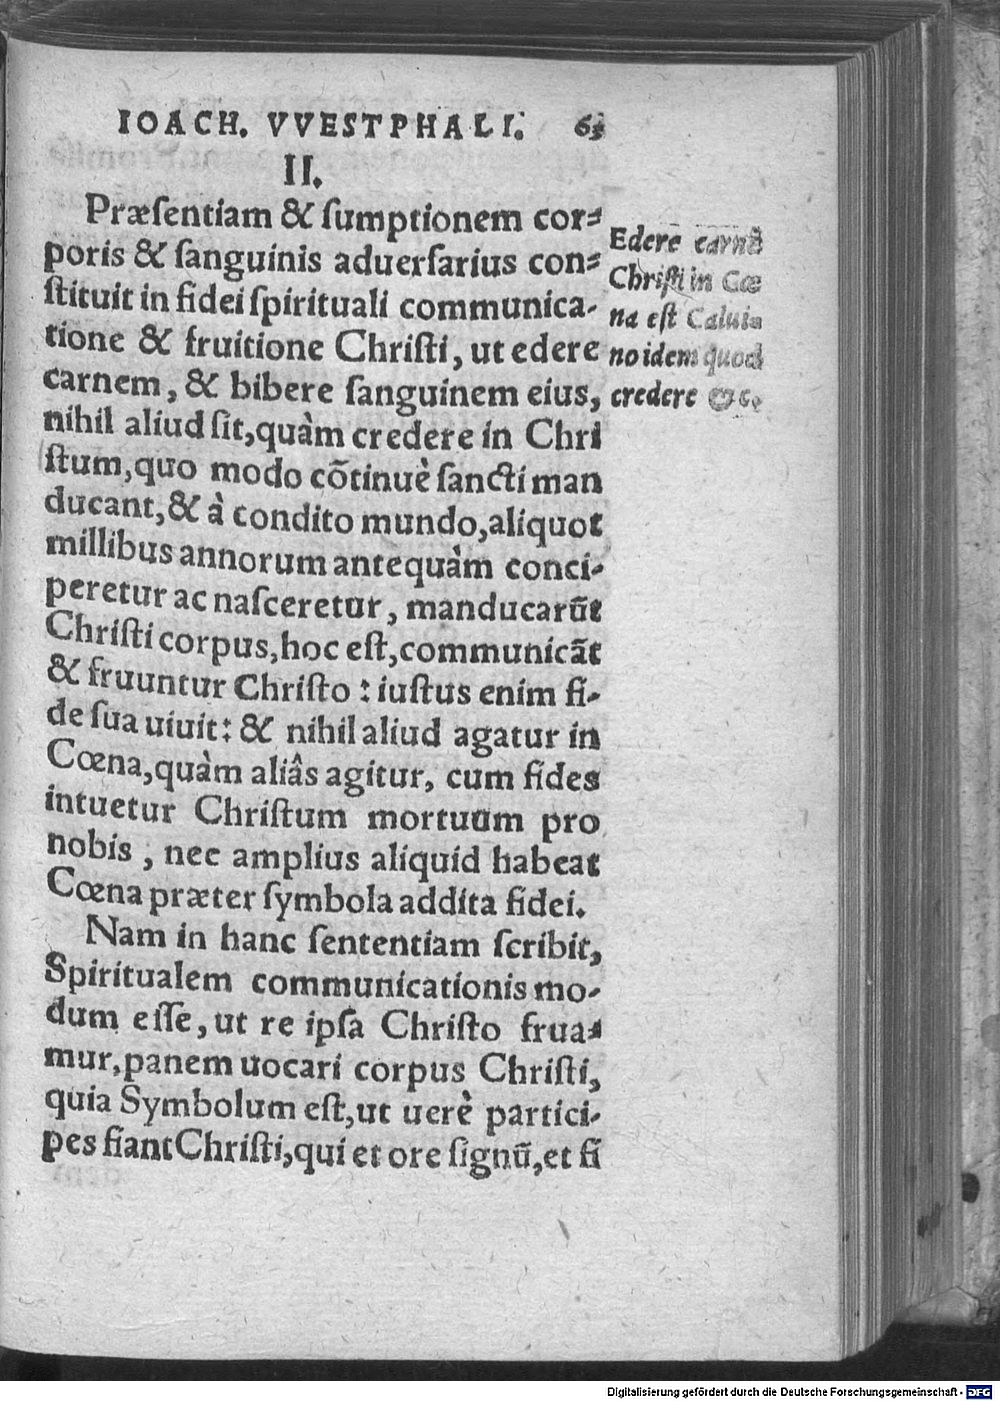 IOACH. VVESTPHALI.
II.
Præſentiam & ſumptionem cor⸗
poris & ſanguinis aduerſarius con⸗
ſtituit in fidei ſpirituali communica-
tione & fruitione Chriſti, ut edere
carnem, & bibere ſanguinem eius,
nihil aliud ſit, quàm credere in Chri
ſtum, quo modo cõtinuè ſancti man
ducant, & à condito mundo, aliquot
millibus annorum antequàm conci-
peretur ac naſceretur, manducarũt
Chriſti corpus, hoc eſt, communicãt
& fruuntur Chriſto : iuſtus enim fi-
de ſua uiuit: & nihil aliud agatur in
Cœna, quàm aliâs agitur, cum fides
intuetur Chriſtum mortuum pro
nobis, nec amplius aliquid habeat
Cœna præter ſymbola addita fidei.
Nam in hanc ſententiam ſcribit,
Spiritualem communicationis mo-
dum eſſe, ut re ipſa Chriſto frua⸗
mur, panem uocari corpus Chriſti,
quia Symbolum eſt, ut uerè partici-
pes fiant Chriſti, qui et ore ſignũ, et fi
Edere carnẽ
Chriſti in Cœ
na eſt Caluia
no idem quod
credere
Digitalisierung gefördert durch die Deutsche Forschungsgemeinschaft - DFG